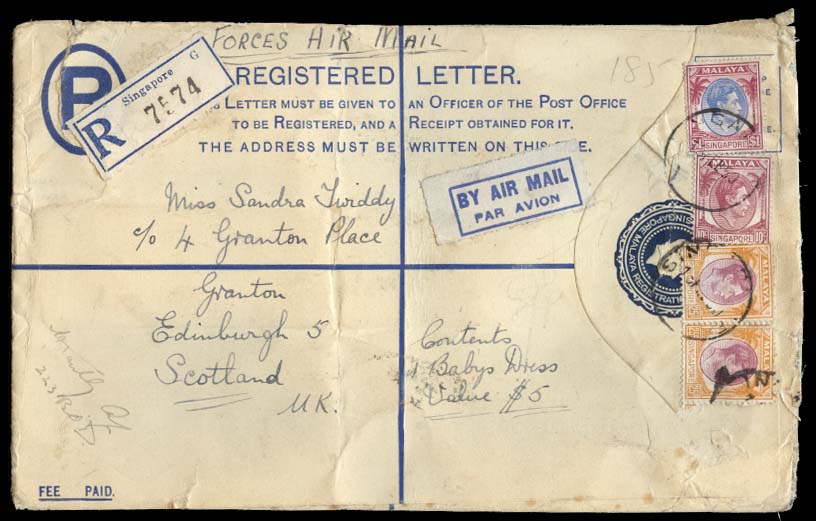 FORCES AIR MAIL
R
Singapore G
R 7574
REGISTERED LETTER.
LETTER MUST BE GIVEN TO AN OFFICER OF THE POST OFFICE
TO BE REGISTERED, AND A RECEIPT OBTAINED FOR IT.
THE ADDRESS MUST BE WRITTEN ON THIS
185
BY AIR MAIL
PAR AVION
Miss Sandra Twiddy
c/o 4 Granton Place
Granton
Edinburgh 5
Scotland
UK.
Contents
1 Babys Dress
Value $5
MALAYA
$1 SINGAPORE $1
MALAYA
10c SINGAPORE 10c
MALAYA
MALAYA
SINGAPORE MALAYA REGISTRATION
FEE PAID.